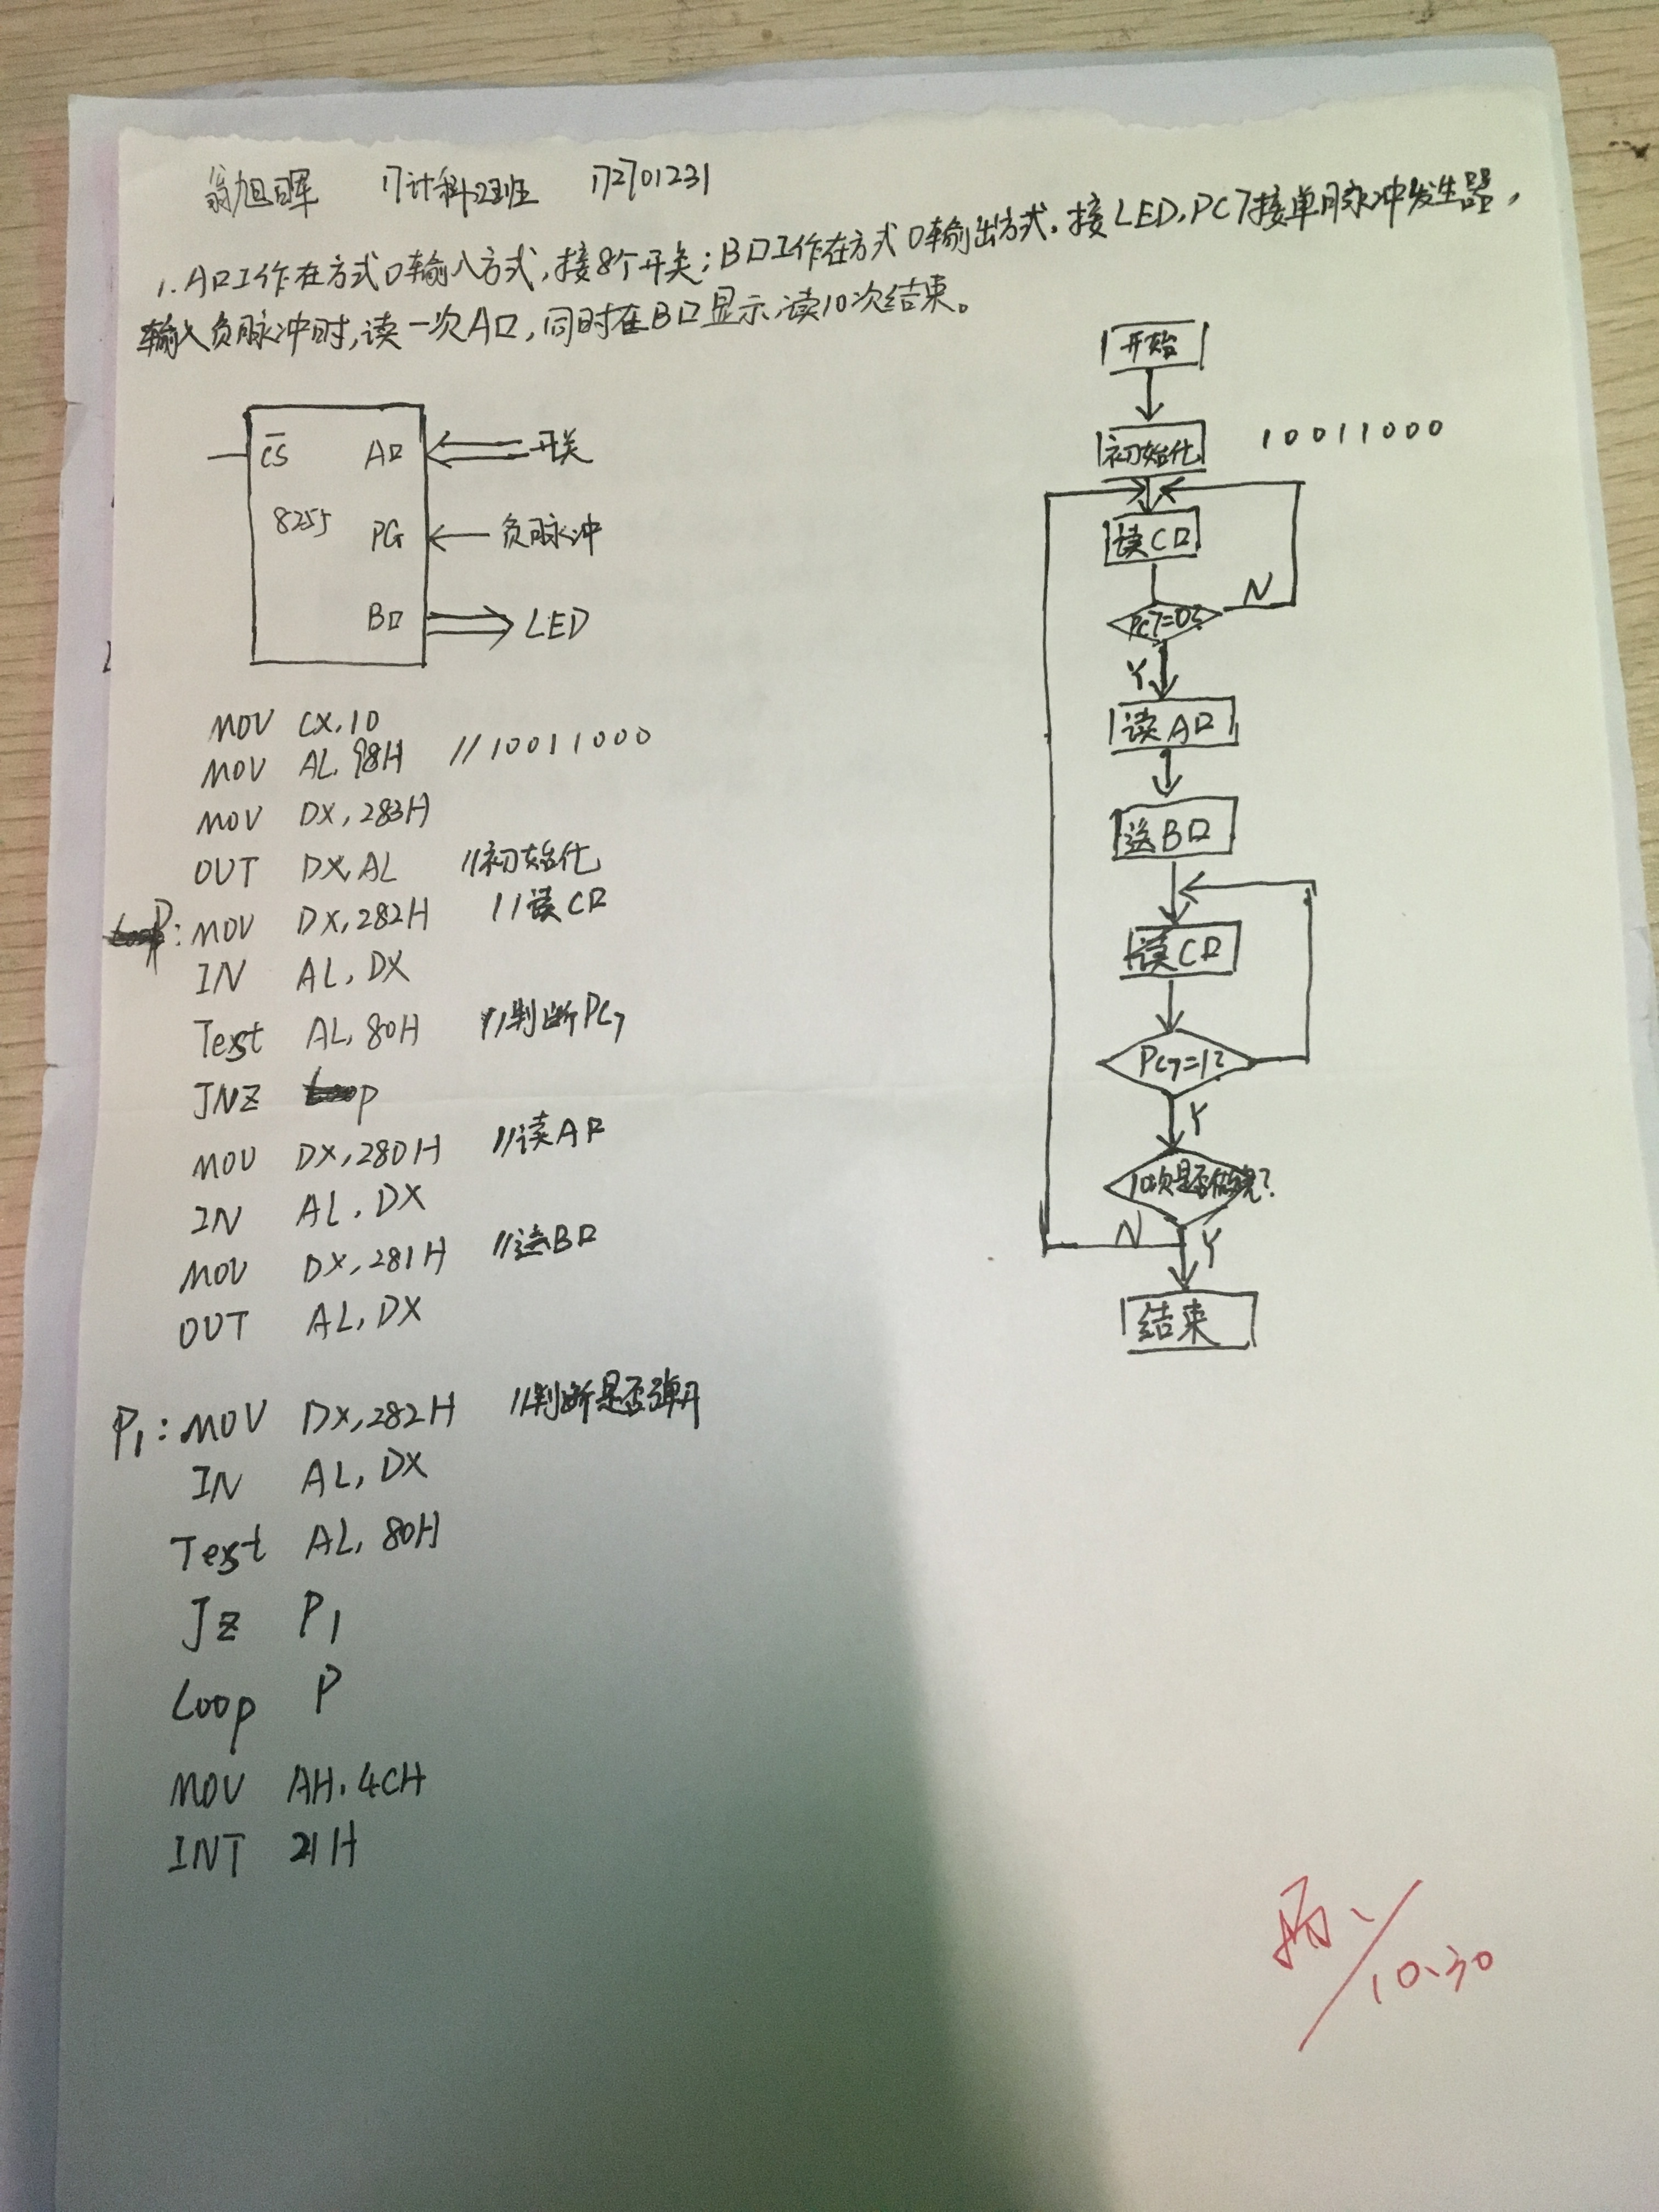 翁旭晖 17计科2班 172701231
1. A口工作在方式0输入方式,接8个开关;B口工作在方式0输出方式,接LED,PC7接单脉冲发生器,
输入负脉冲时,读一次A口,同时在B口显示,读10次结束。
CS A口 开关
8255 PC7 负脉冲
B口 LED
MOV CX,10
MOV AL,98H //10011000
MOV DX,283H
OUT DX,AL //初始化
P: MOV DX,282H //读C口
IN AL,DX
Test AL,80H //判断PC7
JNZ P
MOV DX,280H //读A口
IN AL,DX
MOV DX,281H //送B口
OUT AL,DX
P1: MOV DX,282H //判断是否弹开
IN AL,DX
Test AL,80H
JZ P1
Loop P
MOV AH,4CH
INT 21H
开始
初始化 10011000
读C口
PC7=0? N
Y
读A口
送B口
读C口
PC7=1?
Y
10次是否做完?
N Y
结束
10.30